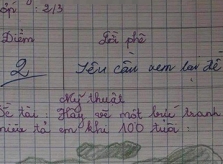 Lớp : 2/3
Điểm Lời phê
2 Yêu cầu xem lại đề
Mỹ thuật
Đề tài : Hãy vẽ một bức tranh
miêu tả em khi 100 tuổi :